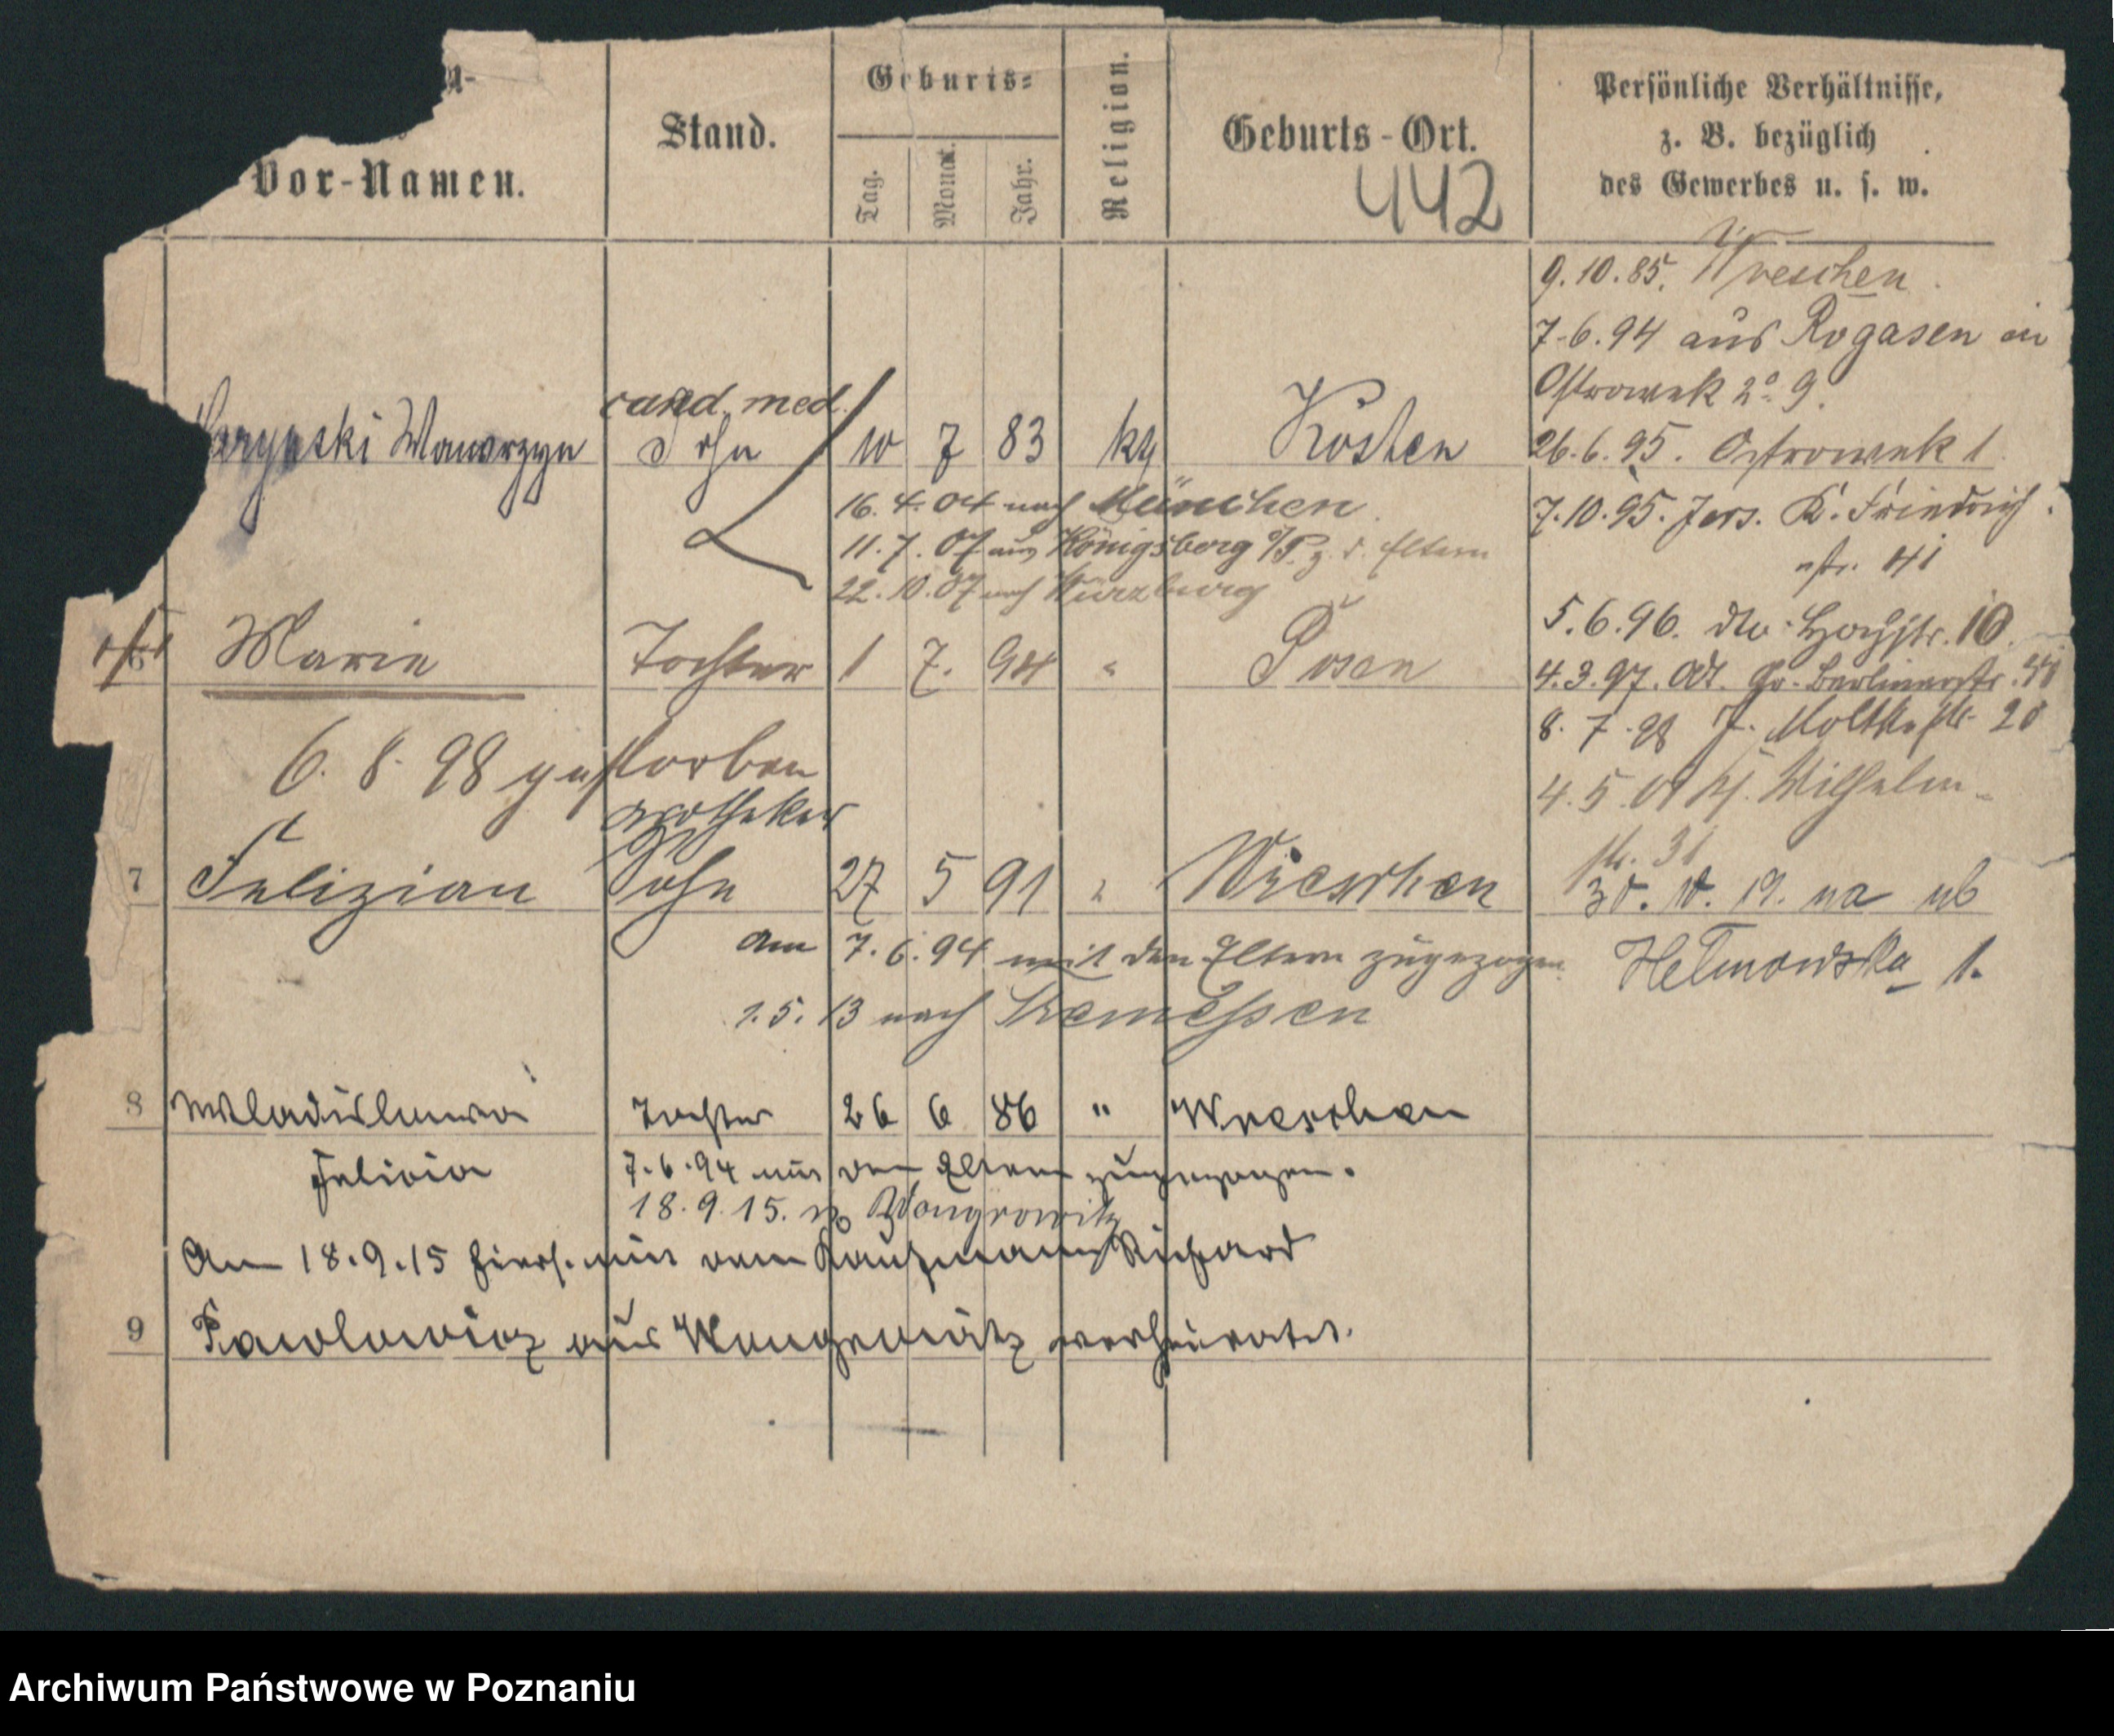 Vor-Namen.
Stand.
Geburts-
Tag. Monat. Jahr.
Religion.
Geburts-Ort.
442
Persönliche Verhältnisse,
z. B. bezüglich
des Gewerbes u. s. w.
9.10.85. Wreschen
7.6.94 aus Rogasen in
Ostrowek 9.
26.6.95. Ostrowek 1
7.10.95. Jers. K. Friedrich
str.
5.6.96. dto. Hochstr. 10.
4.3.97. Gr. Berlinerstr.
8.7.98 J. Moltkestr. 20
4.5. Wilhelm-
str. 31
30. 10. 19. na ub
Helmonska 1.
cand. med.
Wawrzyn Sohn 10 7 83 kth Kosten
16.4.04 nach München.
11.7.07 aus Königsberg i/P. z. d. Eltern
22.10.07 nach Würzburg
6 Marie Tochter 1 7. 94 " Posen
6. 8. 98 gestorben
Apotheker
7 Felizian Sohn 27 5 91 " Wreschen
am 7.6.94 mit den Eltern zugezogen
1.5.13 nach Tremessen
8 Wladislawa Tochter 26 6 86 " Wreschen
Felicia 7.6.94 mit den Eltern zugezogen.
18.9.15. n. Wongrowitz
Am 18.9.15 hiers. mit dem Kaufmann Richard
9 Pawlowicz aus Wongrowitz verheiratet.
Archiwum Państwowe w Poznaniu